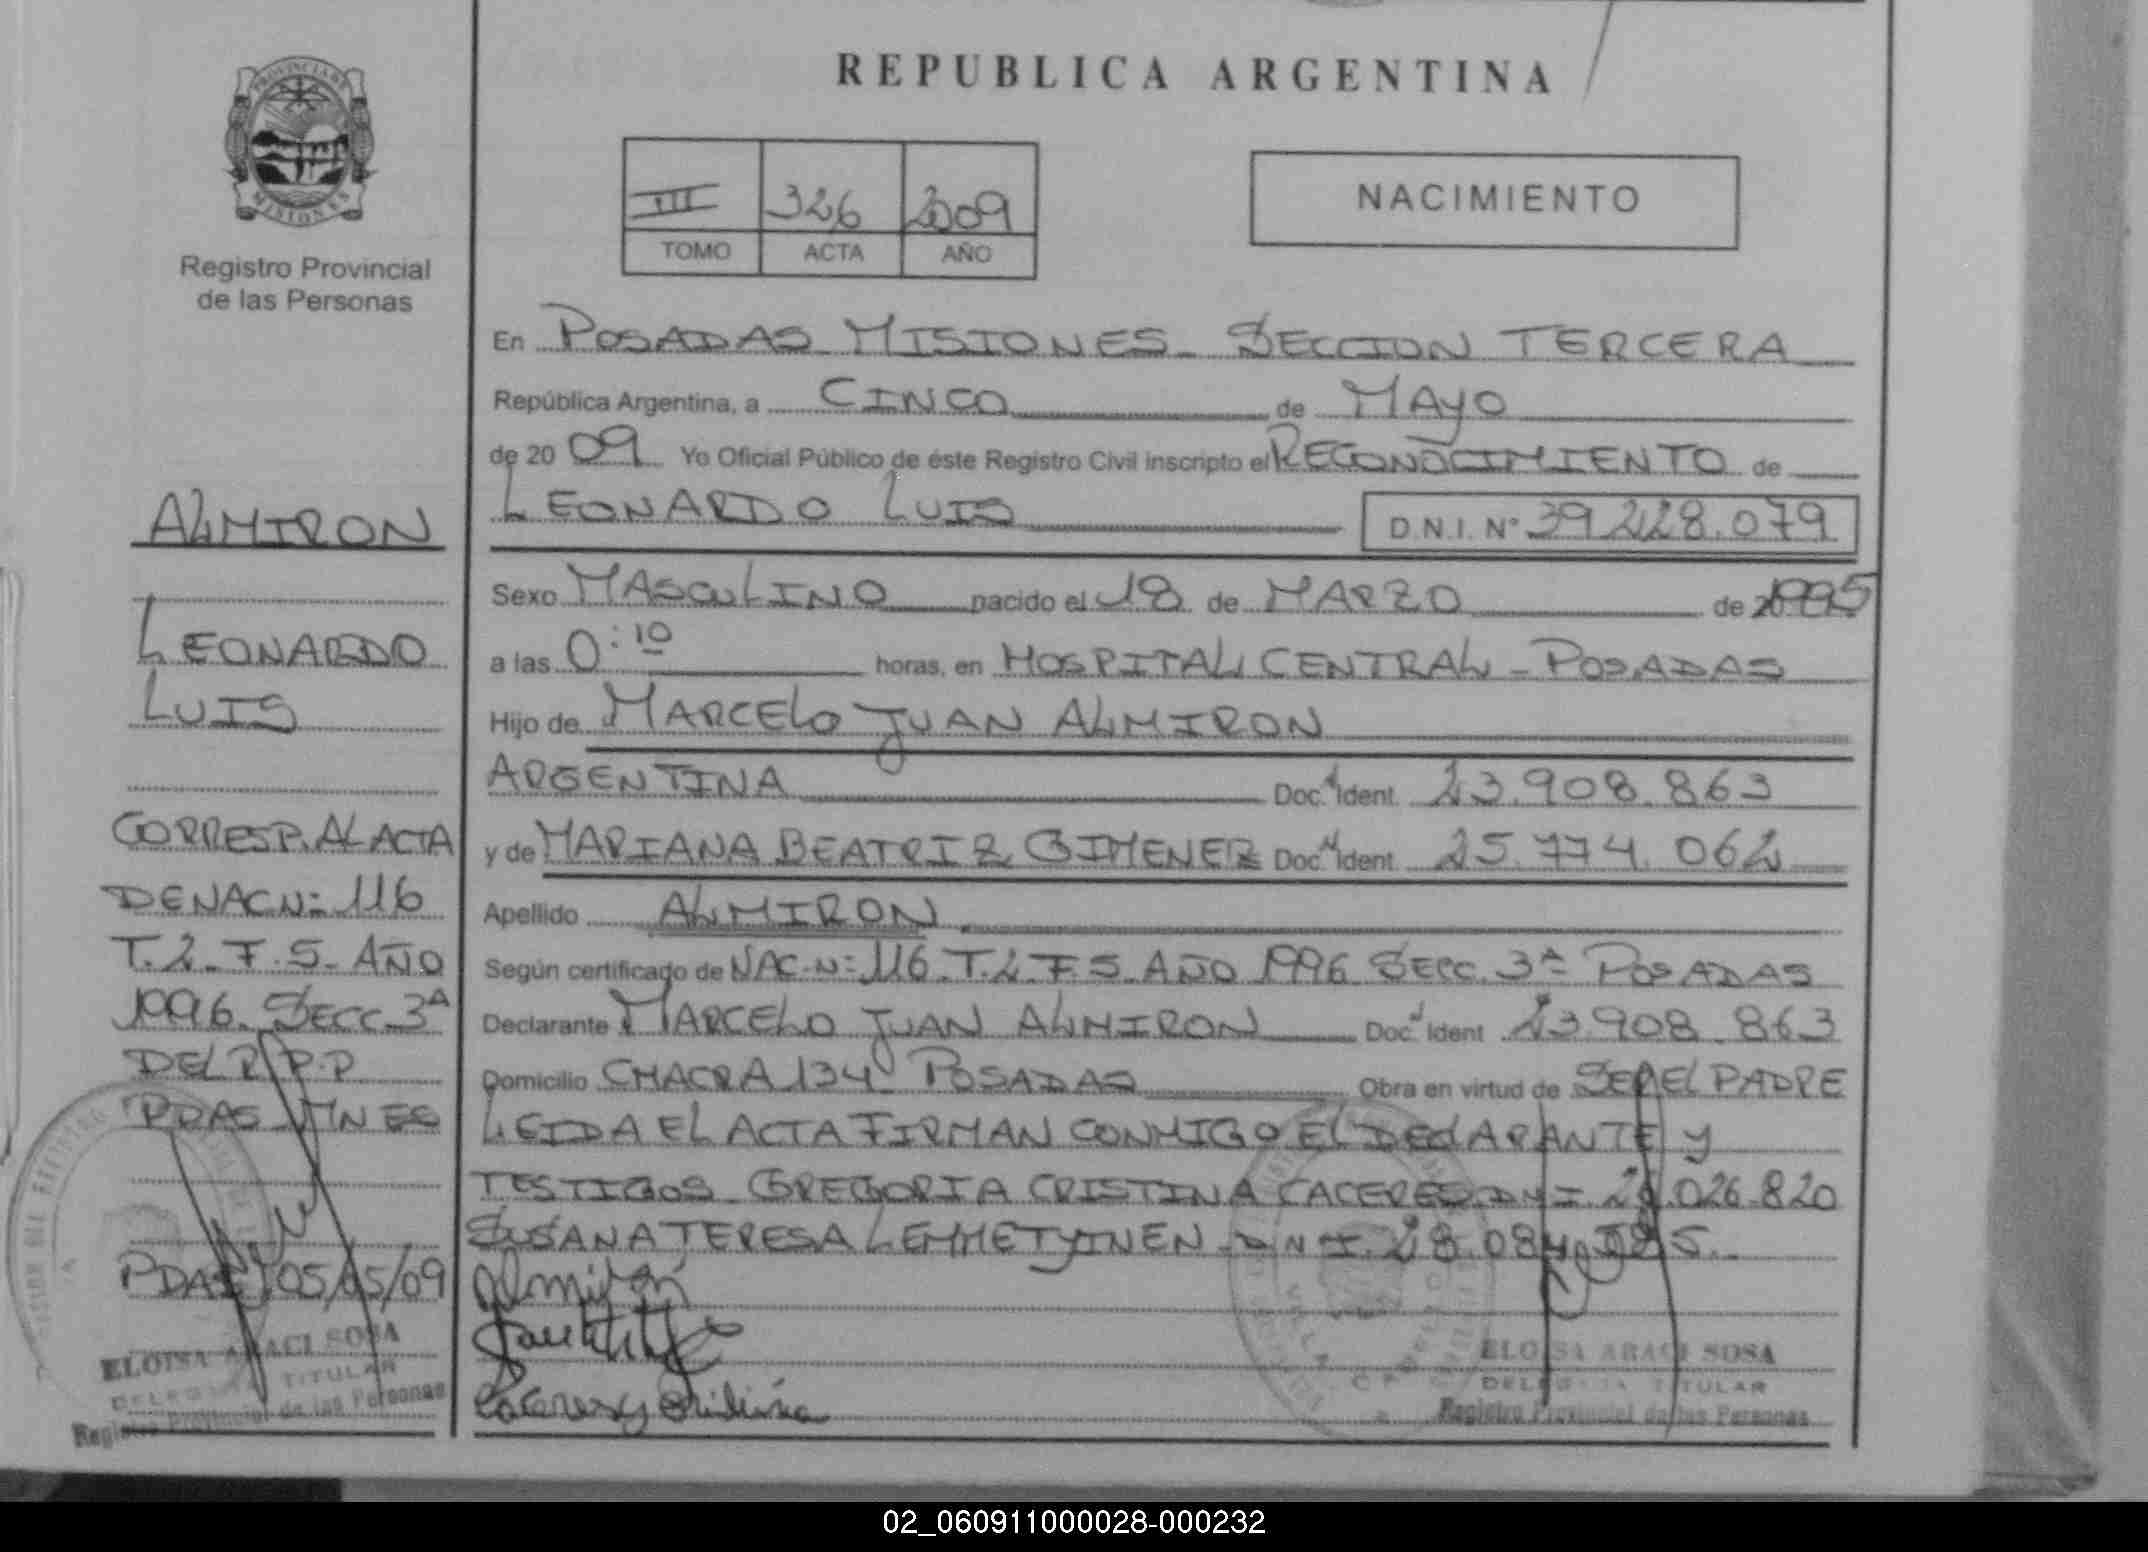 PROVINCIA DE
MISIONES
Registro Provincial
de las Personas
ALMIRON
LEONARDO
LUIS
CORRESP. AL ACTA
DE NAC Nº 116
T. 2 F. 5 AÑO
1996 SECC. 3ª
DEL R.P.P
PDAS MNES
PDAS 05/05/09
ELOISA ARACI SOSA
DELEGADA TITULAR
Registro Provincial de las Personas
REPUBLICA ARGENTINA
III 326 2009
TOMO ACTA AÑO
NACIMIENTO
En POSADAS MISIONES SECCION TERCERA
República Argentina, a CINCO de MAYO
de 20 09 Yo Oficial Público de éste Registro Civil inscripto el RECONOCIMIENTO de
LEONARDO LUIS D.N.I. Nº 39.228.079
Sexo MASCULINO nacido el 18 de MARZO de 1995
a las 0:10 horas, en HOSPITAL CENTRAL - POSADAS
Hijo de MARCELO JUAN ALMIRON
ARGENTINA Doc. Ident. 23.908.863
y de MARIANA BEATRIZ GIMENEZ Doc. Ident. 25.774.062
Apellido ALMIRON
Según certificado de NAC. Nº 116 T. 2 F. 5 AÑO 1996 SECC. 3ª POSADAS
Declarante MARCELO JUAN ALMIRON Doc. Ident 23.908.863
Domicilio CHACRA 134 POSADAS Obra en virtud de SER EL PADRE
LEIDA EL ACTA FIRMAN CONMIGO EL DECLARANTE Y
TESTIGOS GREGORIA CRISTINA CACERES DNI. .026.820
SUSANA TERESA LEMMETYINEN DNI. 28.084.
Almirón
ELOISA ARACI SOSA
DELEGADA TITULAR
Registro Provincial de las Personas
02_060911000028-000232